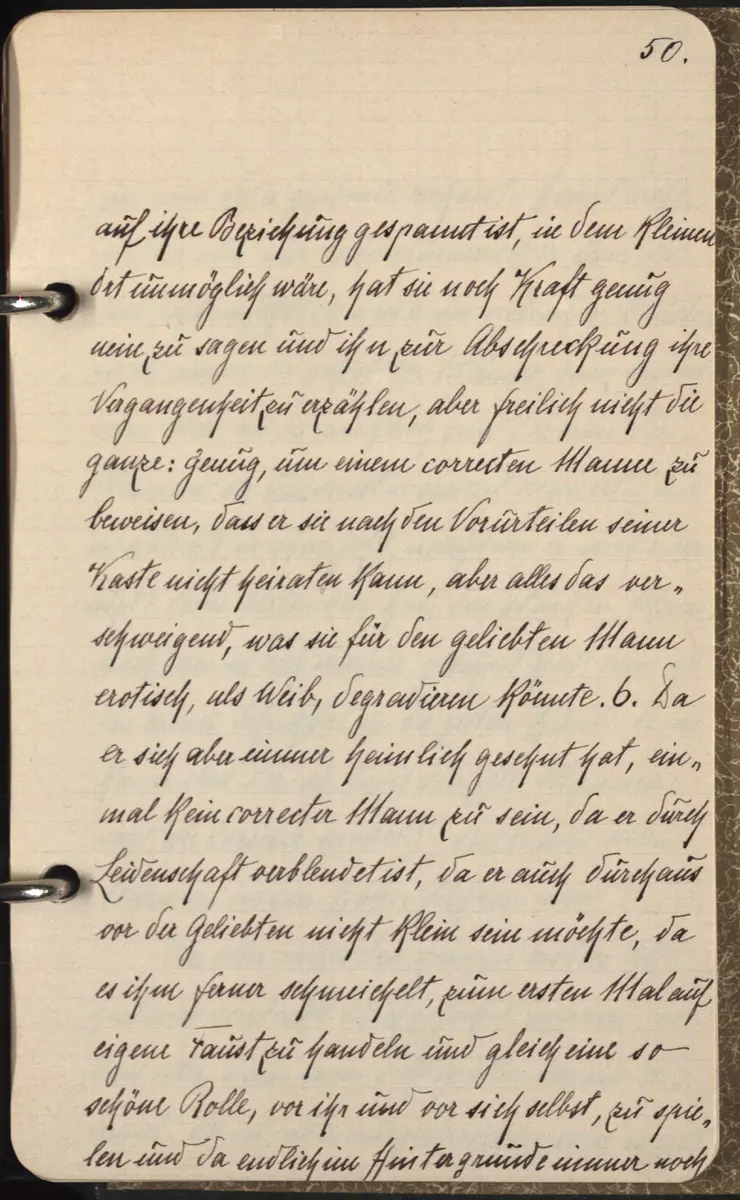 50.
auf ihre Beziehung gespannt ist, in dem kleinen
Ort unmöglich wäre, hat sie noch Kraft genug
nein zu sagen und ihn zur Abschreckung ihre
Vergangenheit zu erzählen, aber freilich nicht die
ganze: genug, um einem correcten Manne zu
beweisen, dass er sie nach den Vorurteilen seiner
Kaste nicht heiraten kann, aber alles das ver„
schweigend, was sie für den geliebten Mann
erotisch, als Weib, degradieren könnte. 6. Da
er sich aber immer heimlich gesehnt hat, ein„
mal kein correcter Mann zu sein, da er durch
Leidenschaft verblendet ist, da er auch durchaus
vor der Geliebten nicht klein sein möchte, da
es ihm ferner schmeichelt, zum ersten Mal auf
eigene Faust zu handeln und gleich eine so
schöne Rolle, vor ihr und vor sich selbst, zu spie„
len und da endlich im Hintergrunde immer noch